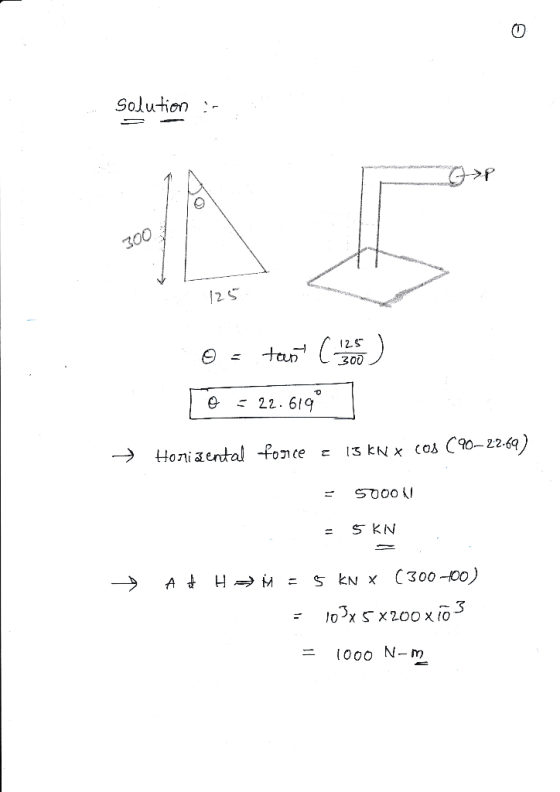 ①
Solution :-
300
θ
125
P
θ = tan⁻¹ (125/300)
θ = 22.619°
→ Horizental force = 13 KN x cos (90-22.69)
= 5000 N
= 5 KN
→ At H ⇒ M = 5 KN x (300-100)
= 10³ x 5 x 200 x 10⁻³
= 1000 N-m